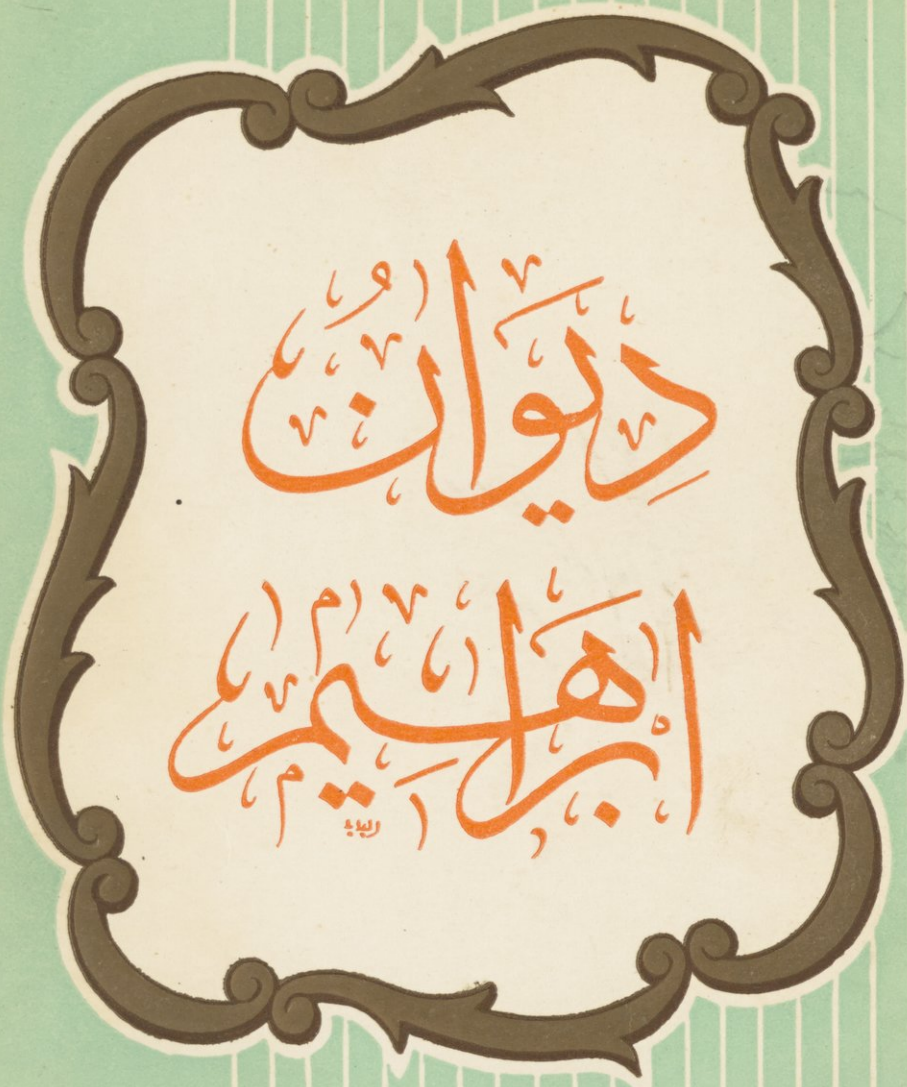 دِيوَانُ
إبْرَاهِيم